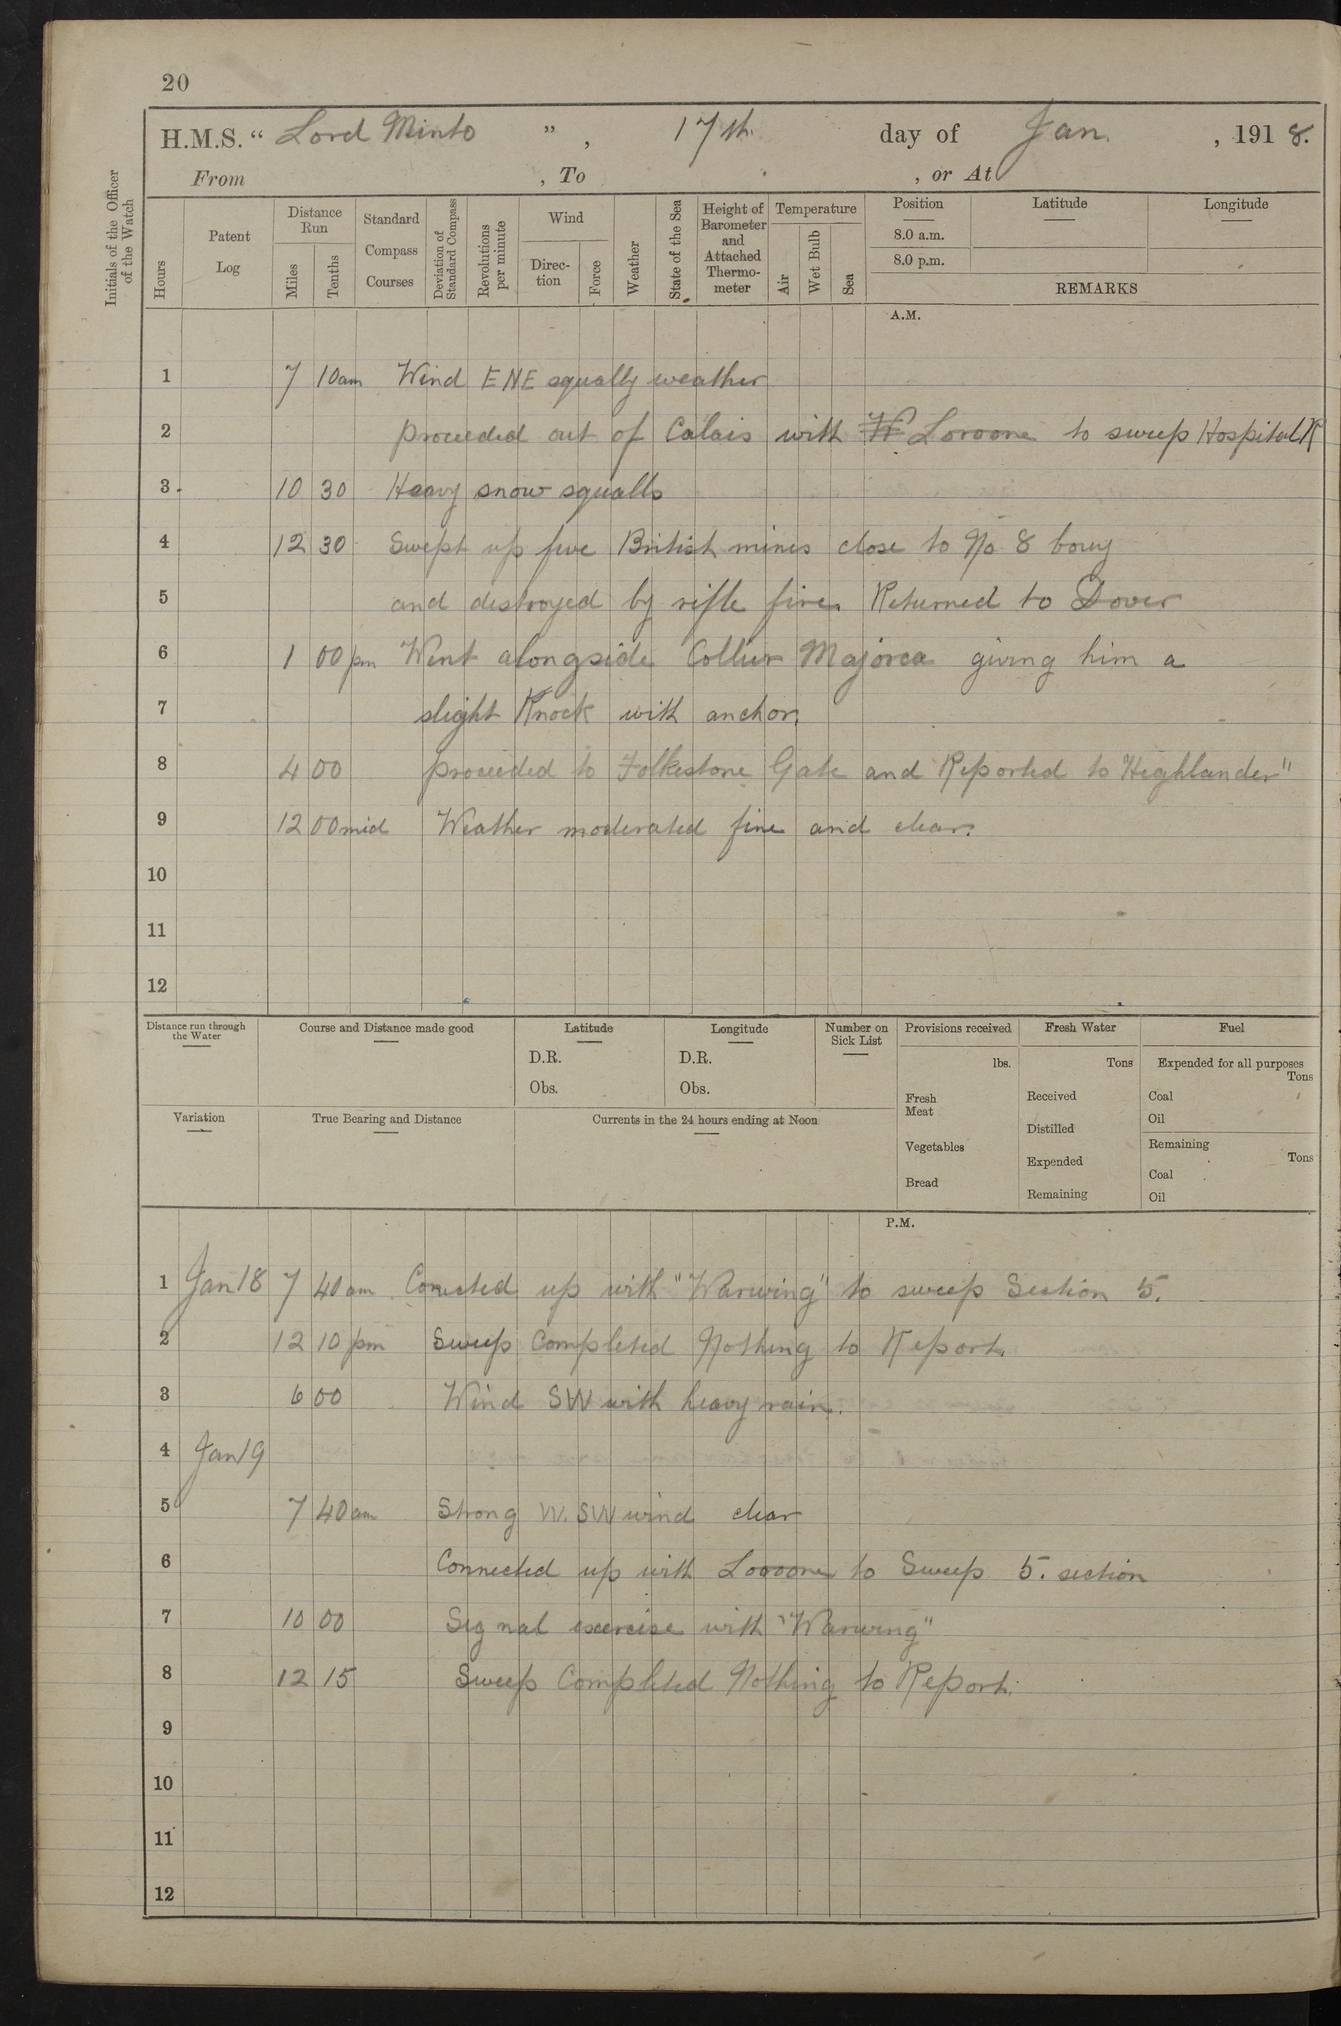 20
H.M.S. " Lord Minto " , 17th. day of Jan. , 1918.
From , To , or At
Initials of the Officer of the Watch
Hours
Patent Log
Distance Run
Miles
Tenths
Standard Compass Courses
Deviation of Standard Compass
Revolutions per minute
Wind
Direc- tion
Force
Weather
State of the Sea
Height of Barometer and Attached Thermo- meter
Temperature
Air
Wet Bulb
Sea
Position
8.0 a.m.
8.0 p.m.
Latitude
Longitude
REMARKS
A.M.
1 7 10am Wind ENE squally weather
2 proceeded out of Calais with Loroone to sweep Hospital R
3 10 30 Heavy snow squalls
4 12 30 Swept up five British mines close to No 8 bouy
5 and destroyed by rifle fire. Returned to Dover
6 1 00 pm Went alongside Collier Majorca giving him a
7 slight Knock with anchor.
8 4 00 proceeded to Folkestone Gate and Reported to "Highlander"
9 12 00 mid Weather moderated fine and clear.
10
11
12
Distance run through the Water
Course and Distance made good
Latitude
D.R.
Obs.
Longitude
D.R.
Obs.
Number on Sick List
Provisions received
lbs.
Fresh Meat
Vegetables
Bread
Fresh Water
Tons
Received
Distilled
Expended
Remaining
Fuel
Expended for all purposes
Tons
Coal
Oil
Remaining
Tons
Coal
Oil
Variation
True Bearing and Distance
Currents in the 24 hours ending at Noon
P.M.
1 Jan 18 7 40 am Conected up with "Warwing" to sweep Section 5.
2 12 10 pm Sweep Completed Nothing to Report.
3 6 00 Wind SW with heavy rain.
4 Jan 19
5 7 40 am Strong W.SW wind clear
6 Connected up with Loroone to Sweep 5. section
7 10 00 Signal exercise with "Warwing"
8 12 15 Sweep Completed Nothing to Report.
9
10
11
12